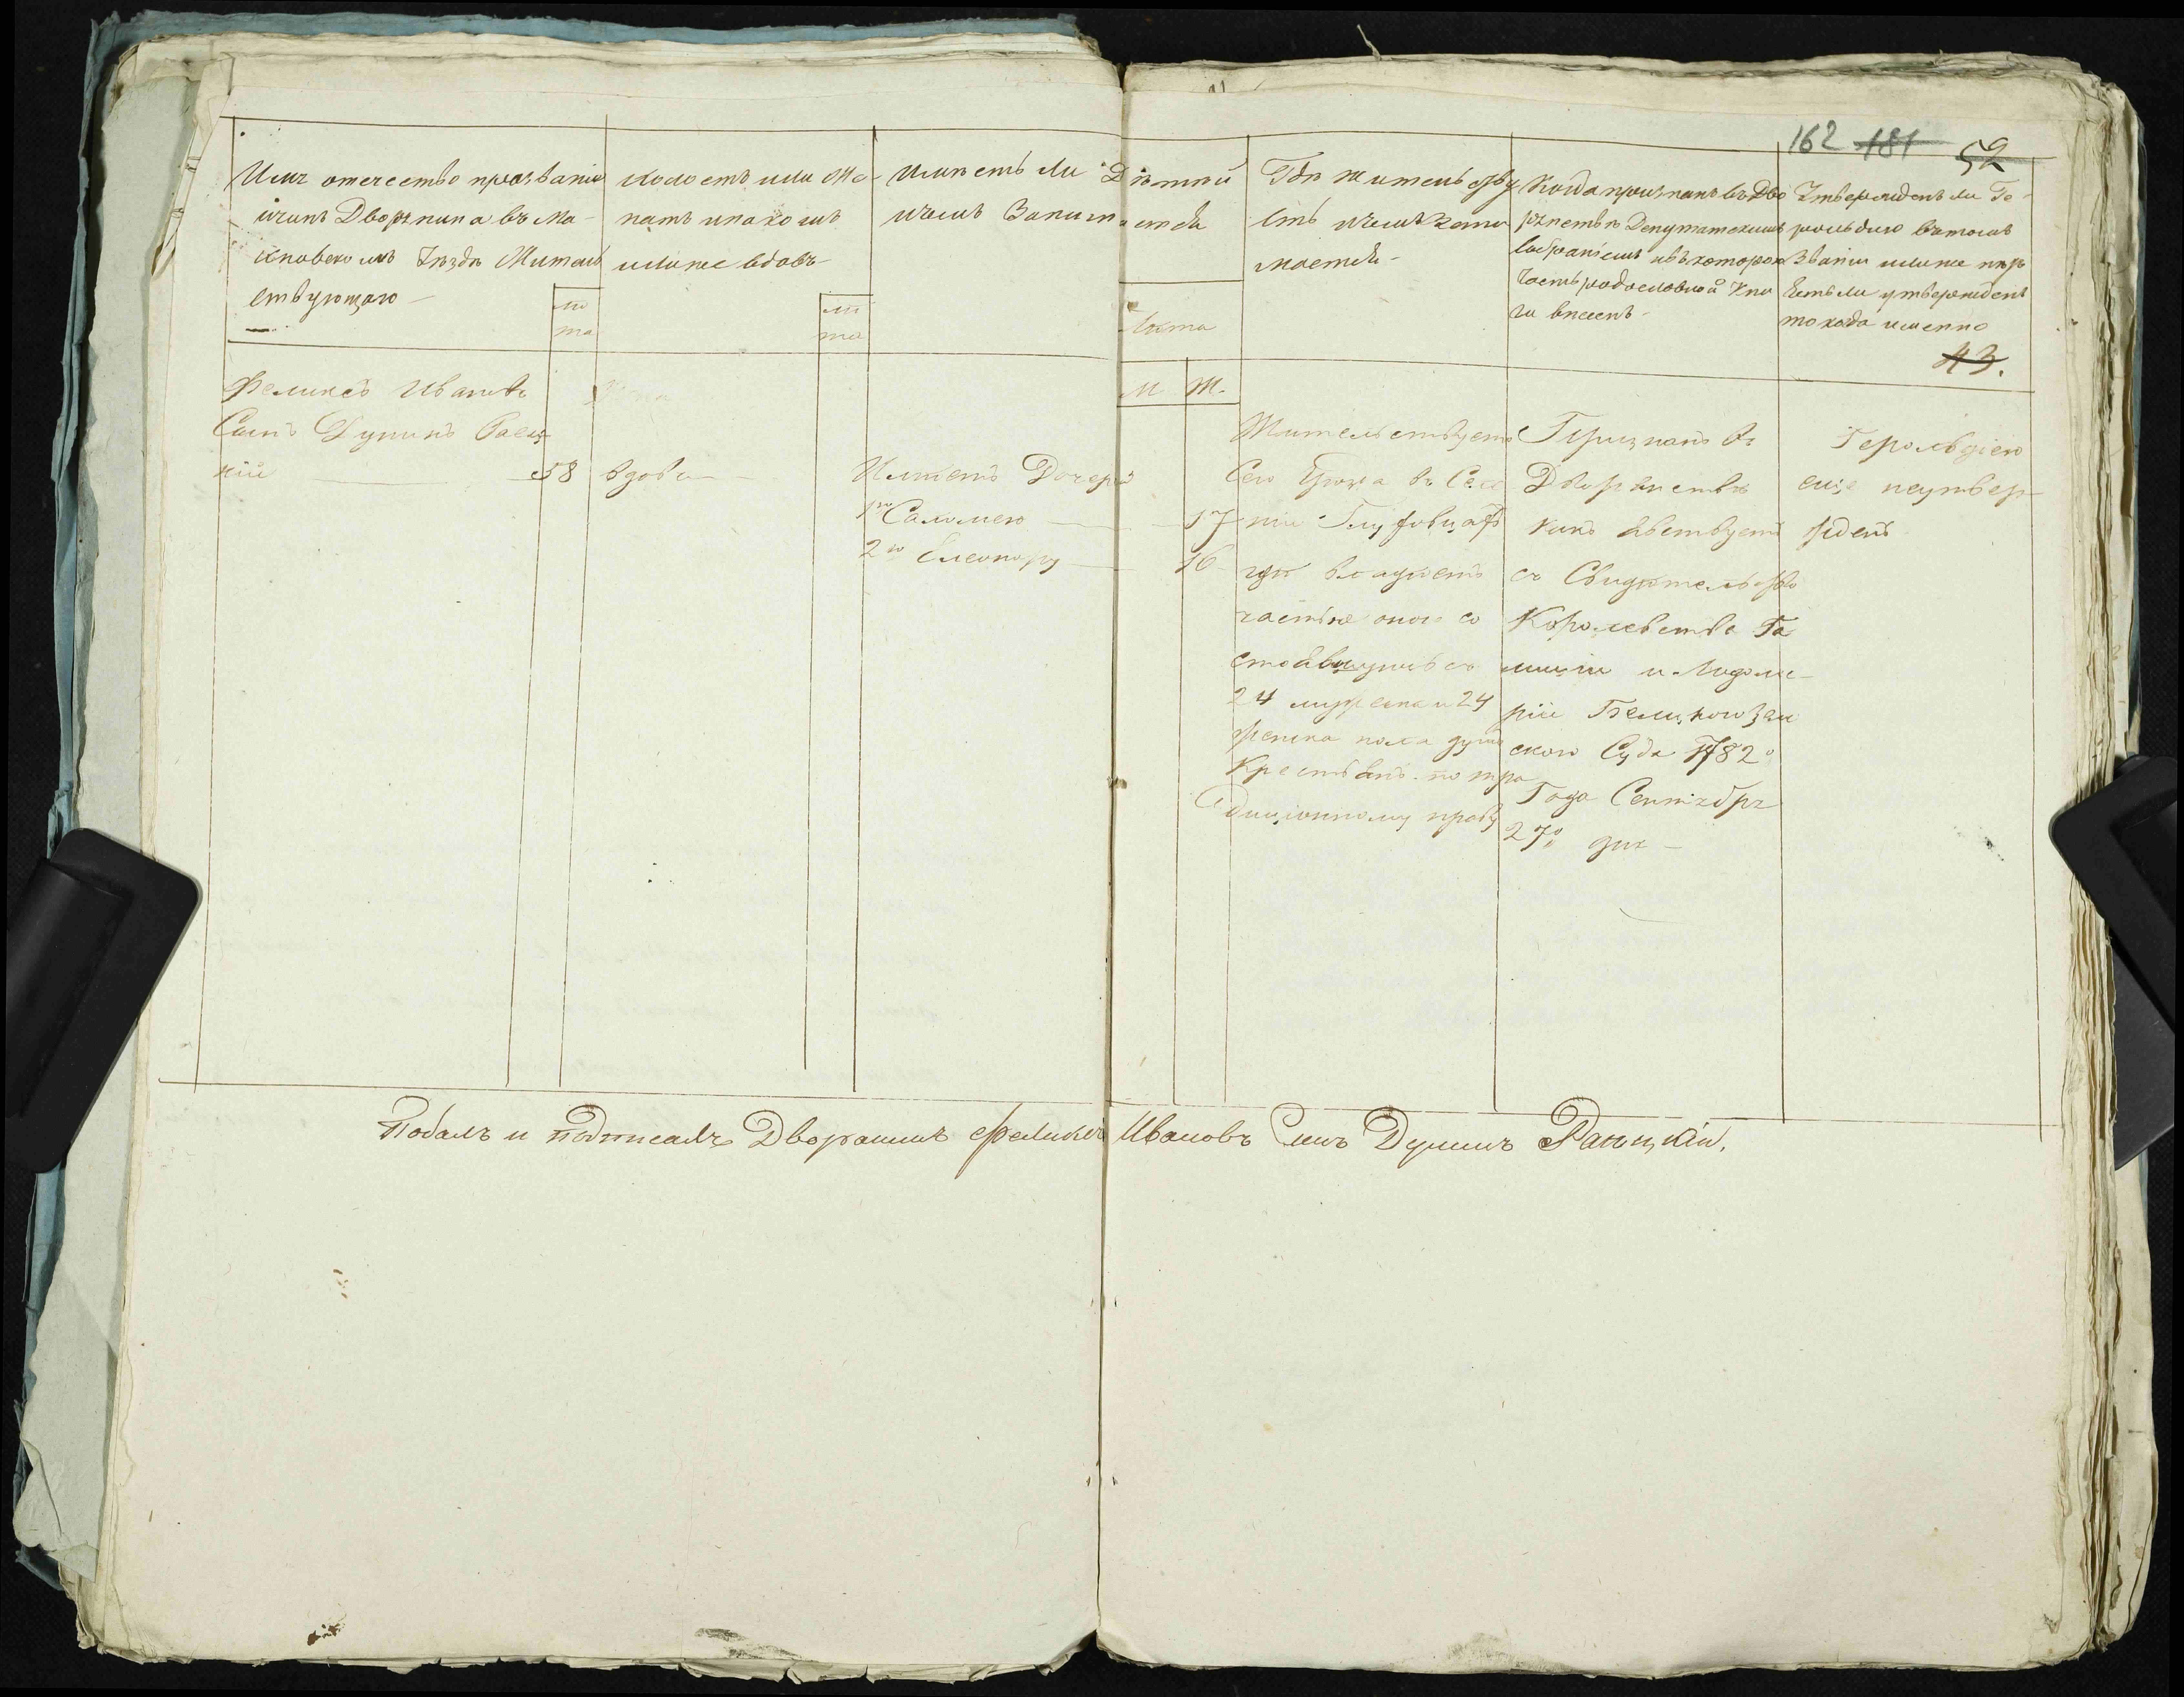 162 181 52
Имя отечество прозваніе
ичинъ Дворянина въ Ма-
хновскомъ Уѣздѣ Житель
ствующаго
лѣ
та
холостъ или же-
натъ и на комъ
или же вдовъ
лѣ
та
Имѣетъ ли Дѣтей
и чемъ Занимается
Лѣта
М Ж.
Гдѣ жительству
етъ и чемъ зани
мается
Когда признанъ въ Дво
рянствѣ Депутатскимъ
Собраніемъ и въ которою
Часть родословной Кни
ги внесенъ
Утвержденъ ли Ге-
рольдіею въ томъ
Званіи или же нѣтъ
Естьли утвержденъ
то когда именно
43.
Феликсъ Ивановъ
Сынъ Дунинъ Раец
кій 58
вдовъ
Имѣетъ Дочерей
1ю Саломею 17
2ю Елеонору 16
Жительствуетъ
Сего Уѣзда въ Селе
ніи Глуховцахъ
гдѣ владѣетъ
частью оного со
стоявшуюсь съ
24 мужеска и 24
женска пола душъ
Крестьянъ по тра
диціонному праву
Признанъ въ
Дворянствѣ
какъ явствуетъ
съ Свидѣтельство
Королевства Га
лиціи и Лодоме-
ріи Белцкого Зем
ского Суда 1782о
Года Сентября
27о дня
Герольдіею
еще неутвер-
жденъ
Подалъ и подписалъ Дворанинъ Феликсъ Ивановъ Сынъ Дунинъ Раецкій.